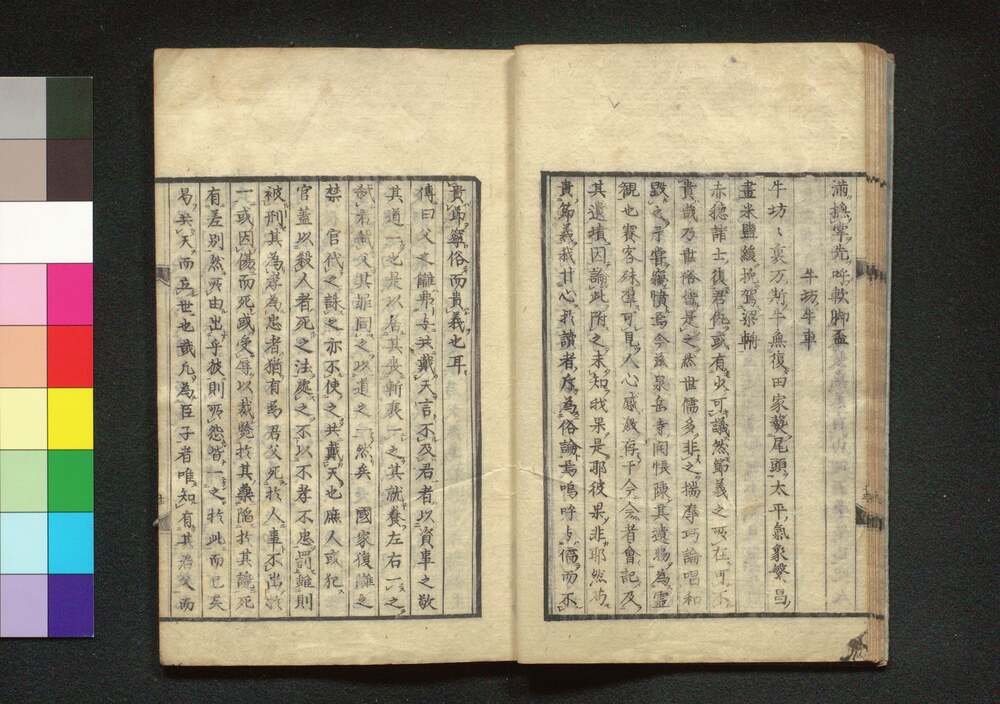 牛坊牛車
牛坊々裏万斯牛無復田家襲尾頭太平氣象繁昌
盡米鹽緩挽駕梁輈
赤穂諸士復君仇或有少可議然節義之所在可不
貴哉乃世俗儒是之然世儒多非之揣摩巧論唱和
毀之予嘗竊憤焉今茲泉岳寺開帳陳其遺物為靈
觀也賽客殊準可見人心感慨存于今会者會記及
其遺墳因論此附之未知我果是耶彼果非耶然
貴節義我甘心我讀者斥為俗論焉嗚呼與儒而不
貴節寧俗而貴義也耳
傳曰父之讎弗與共戴天言不及君者以資事之敬
其道一也是以居其喪斬衰一之其就養左右一之
弑君弑父其罪同之以道之一然矣 國家復讎之
禁 官代之誅之亦不使之共戴天也庶人或犯
官蓋以殺人者死之法處之不以不孝不忠罰雖則
被刑其為孝為忠者猶有焉君父死於人事不出於
一或因傷而死或受辱以裁斃於其藥陷於其讒死
有差別然所由出乎彼則所怨皆一之於此而已矣
易矣天而立世也哉凡為臣子者唯知有其君父而